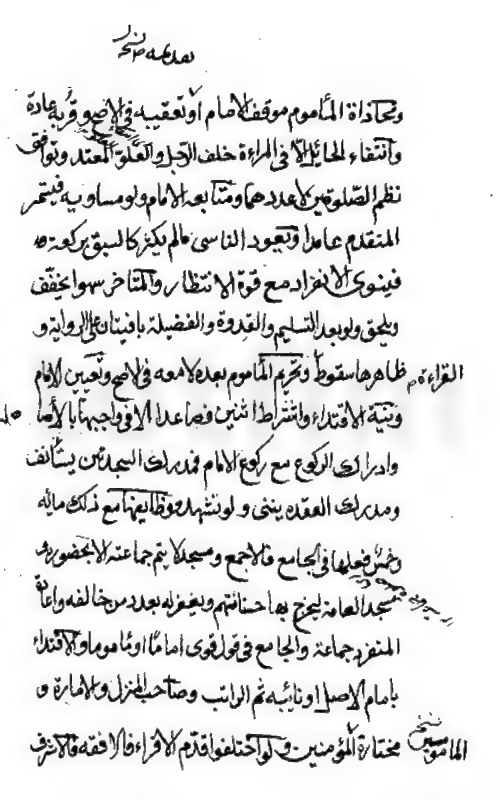 ومحاذاة المأموم موقف الامام او تعقيبه في الاصح وقربه عادة
وانتفاء الحايل الا في المراءة خلف الرجل والعلو المعتد وتوافق
نظم الصلوتين لا عددهما ومتابعه الامام ولو مساويه فيستمر
المتقدم عامدا ويعود الناسى مالم يكثر كالسبق بركعة
فينوى الانفراد مع قوة الانتظار والمتاخر سهوا يخفف
ويلحق ولو بعد التسليم والقدوة والفضيلة باقيتان على الرواية و
ظاهرها سقوط وتحريم المأموم بعده لا معه في الاصح وتعيين الامام
القراءة
ونية الاقتداء واشتراط اثنين فصاعدا الا في واجبها بالامام
وادراك الركوع مع ركوع الامام فمدرك السجدتين يستأنف
ومدرك القعده يبنى ولو تشهد
وخمس فعلها في الجامع فالاجمع ومسجد لا يتم جماعته الا بحضوره
مسجد العامة ليخرج بحسناتهم ويغفر له بعدد من خالفه واعادة
المنفرد جماعة والجامع في قول قوى اماما او مأموما والاقتداء
بامام الاصل او نائبه ثم الراتب وصاحب المنزل والامارة و
مختارة المؤمنين ولو اختلفوا قدم الاقراء فالافقه فالاشرف
المأمومين